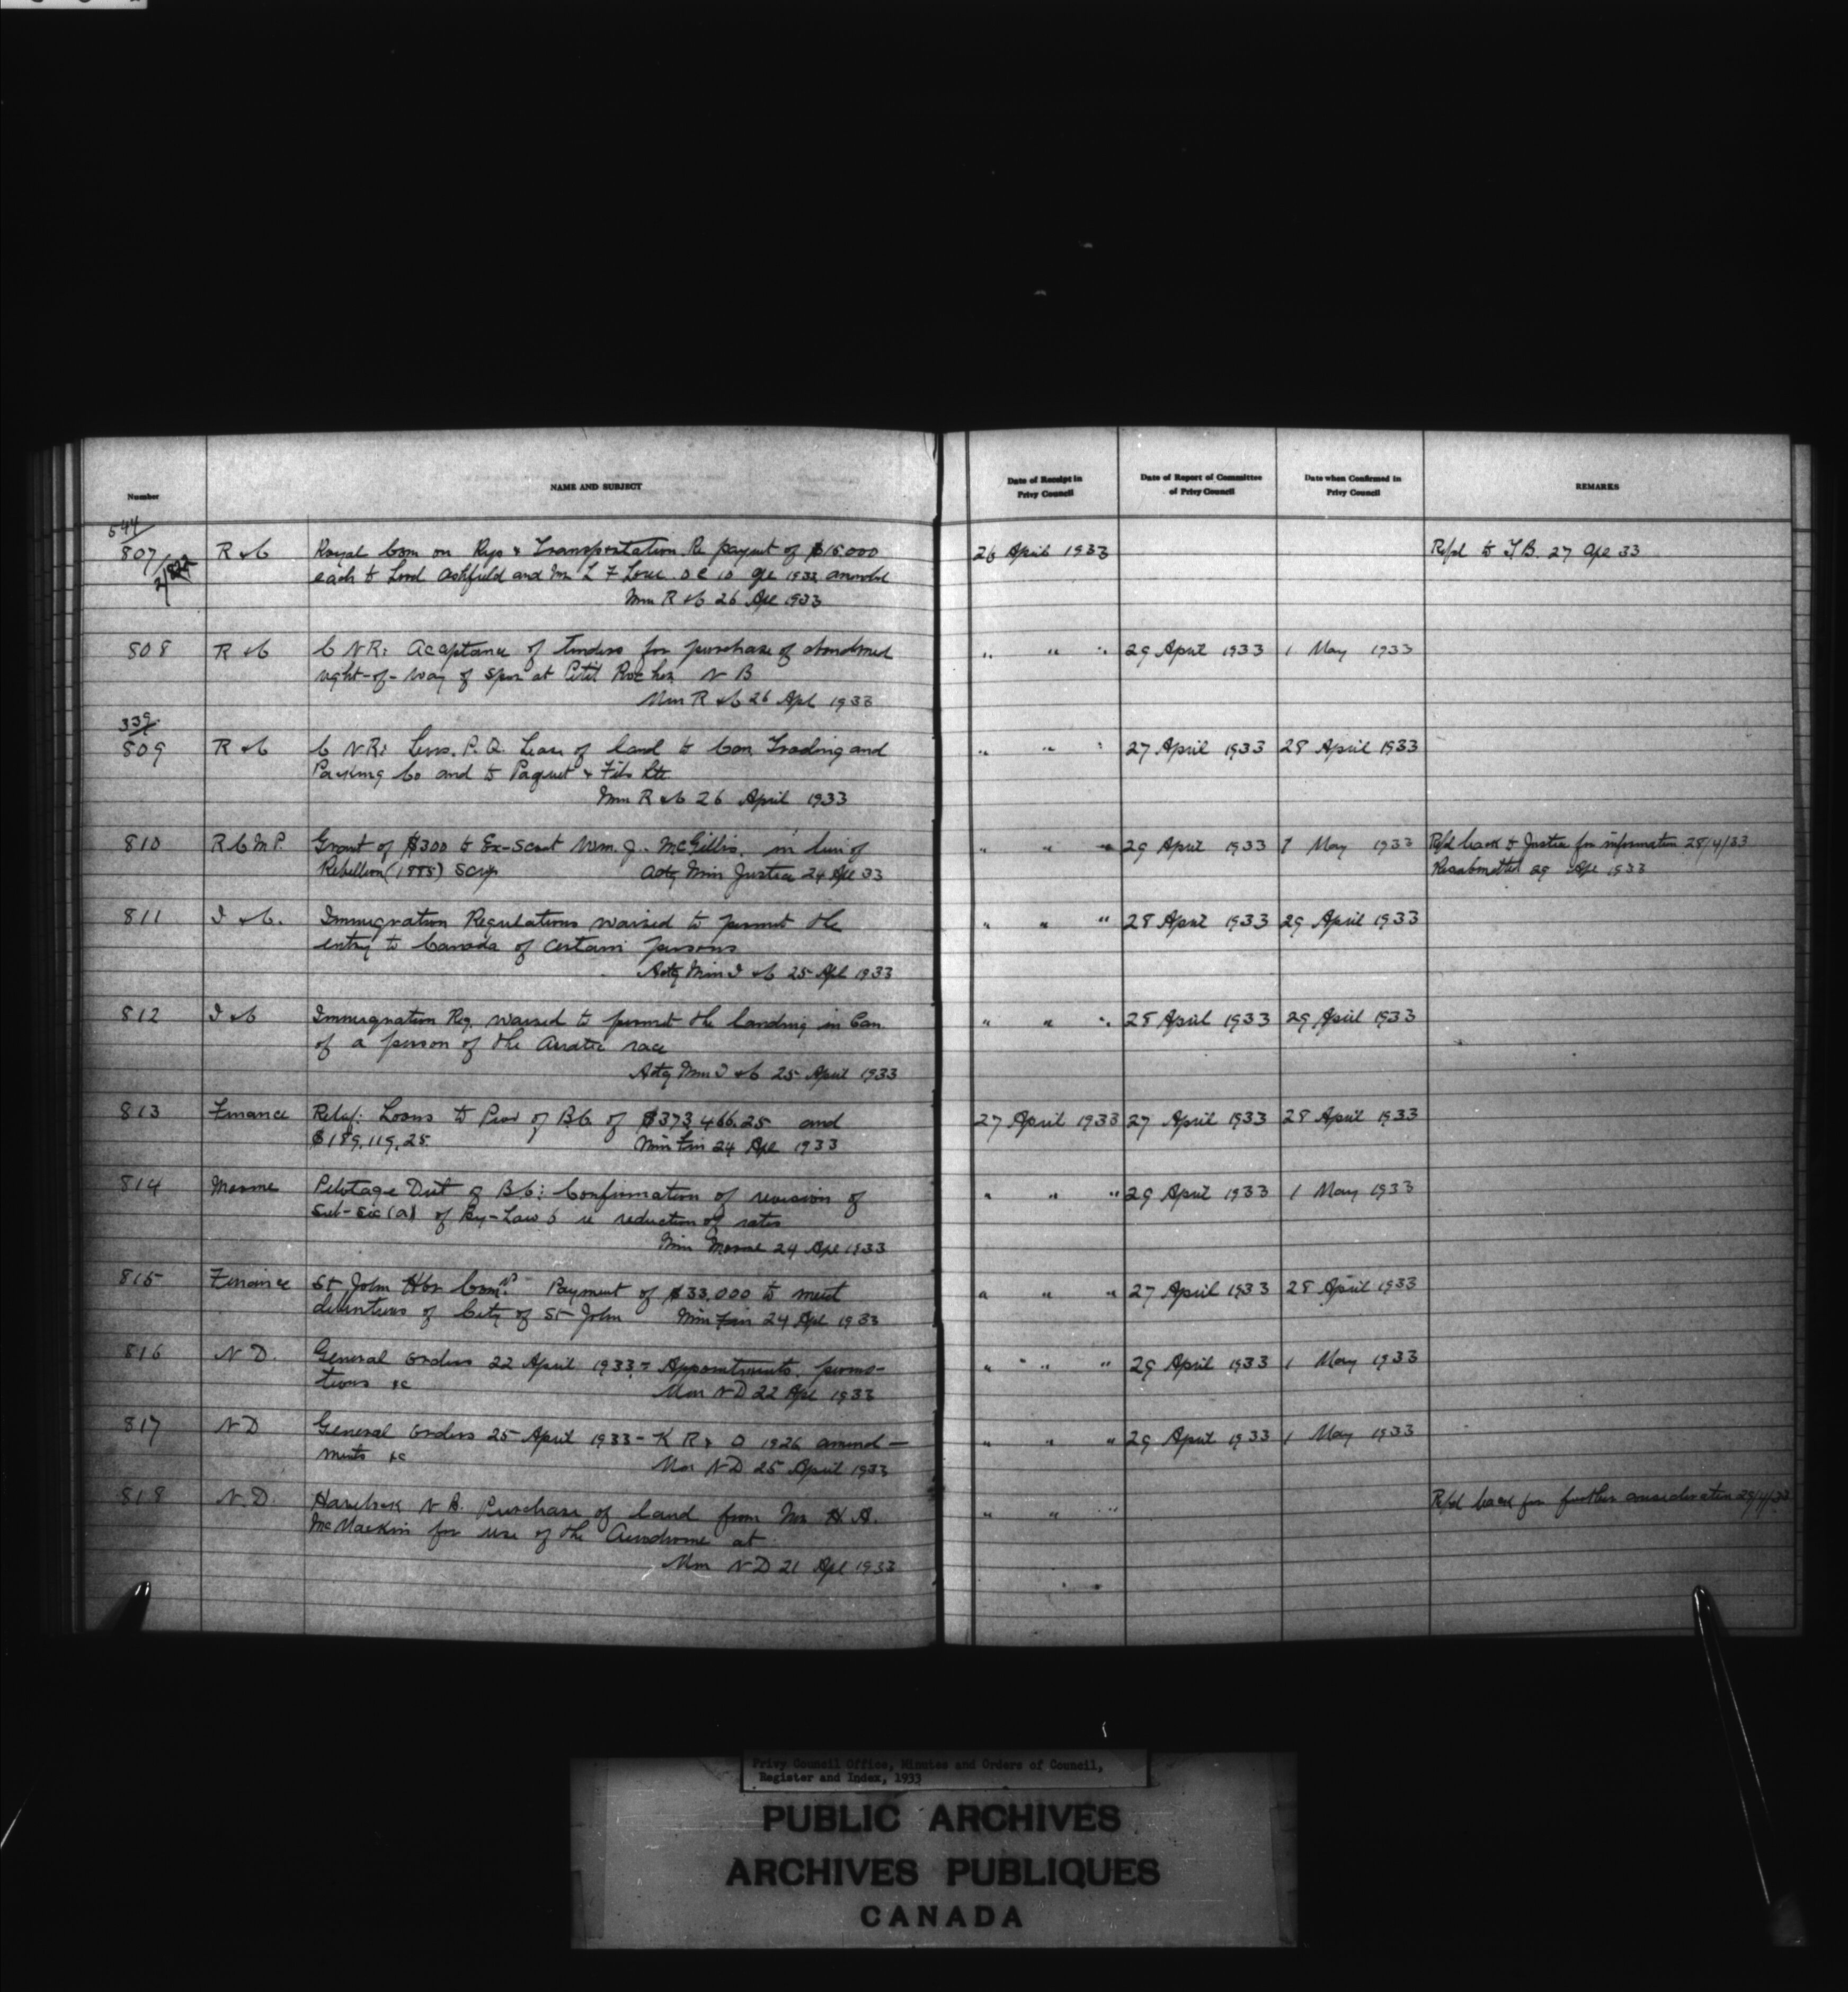 Number
NAME AND SUBJECT
Date of Receipt in
Privy Council
Date of Report of Committee
of Privy Council
Date when Confirmed in
Privy Council
REMARKS
544/
807 R & C Royal Com on Rys & Transportation Re payment of $15000 26 April 1933 Refd to T.B. 27 Apl 33
each to Lord Ashfield and Mr L F Loree O C 10 Apl 1933
Min R & C 26 Apl 1933
808 R & C C N R: Acceptance of tenders for purchase of abandoned " " " 29 April 1933 1 May 1933
right-of-way of spur at Petit Rocher N B
Min R & C 26 Apl 1933
339
809 R & C C N R: Levis, P.Q. Lease of land to Can Trading and " " " 27 April 1933 28 April 1933
Packing Co and to Paquet & Fils Lte
Min R & C 26 April 1933
810 R C M P. Grant of $300 to Ex-Scout Wm. J. McGillis, in lieu of " " " 29 April 1933 1 May 1933 Refd back to Justice for information 28/4/33
Rebellion (1885) Scrip Actg Min Justice 24 Apl 33 Resubmitted 29 Apl 1933
811 I & C. Immigration Regulations waived to permit the " " " 28 April 1933 29 April 1933
entry to Canada of certain persons
Actg Min I & C 25 Apl 1933
812 I & C Immigration Reg. waived to permit the landing in Can. " " " 28 April 1933 29 April 1933
of a person of the Asiatic race
Actg Min I & C 25 April 1933
813 Finance Relief: Loans to Prov of B.C. of $373,466.25 and 27 April 1933 27 April 1933 28 April 1933
$189,119.28 Min Fin 24 Apl 1933
814 Marine Pilotage Dist of B.C: Confirmation of revision of " " " 29 April 1933 1 May 1933
Sub-sec (a) of By-Law 6 re reduction of rates
Min Marine 24 Apl 1933
815 Finance St John Hbr Comrs Payment of $33,000 to meet " " " 27 April 1933 28 April 1933
debentures of City of St John Min Fin 24 Apl 1933
816 N D. General Orders 22 April 1933 - Appointments, promo- " " " 29 April 1933 1 May 1933
tions &c Min N D 22 Apl 1933
817 N D General Orders 25 April 1933 - K R & O 1926 amend- " " " 29 April 1933 1 May 1933
ments &c Min N D 25 April 1933
818 N. D. N B. Purchase of land from Mr H A. " " " Refd back for further consideration
McMackin for use of the Aerodrome at
Min N D 21 Apl 1933
Privy Council Office, Minutes and Orders of Council,
Register and Index, 1933
PUBLIC ARCHIVES
ARCHIVES PUBLIQUES
CANADA